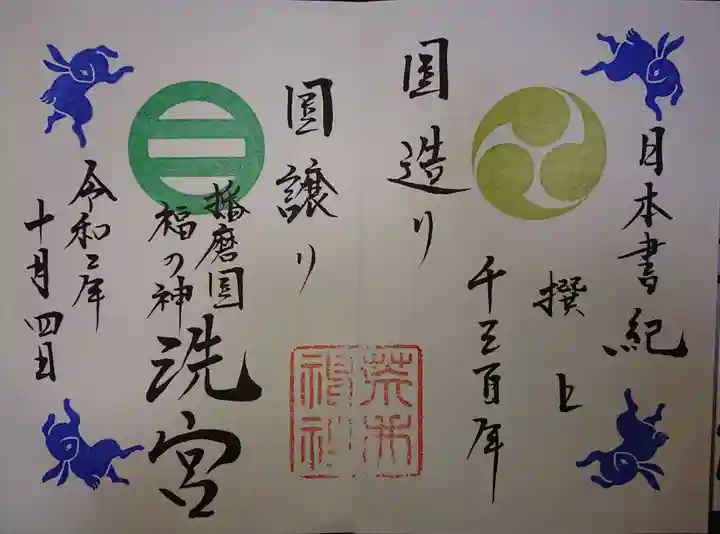 日本書紀
撰上
千三百年
国造り
国譲り
播磨国
福の神
洗宮
令和二年
十月四日